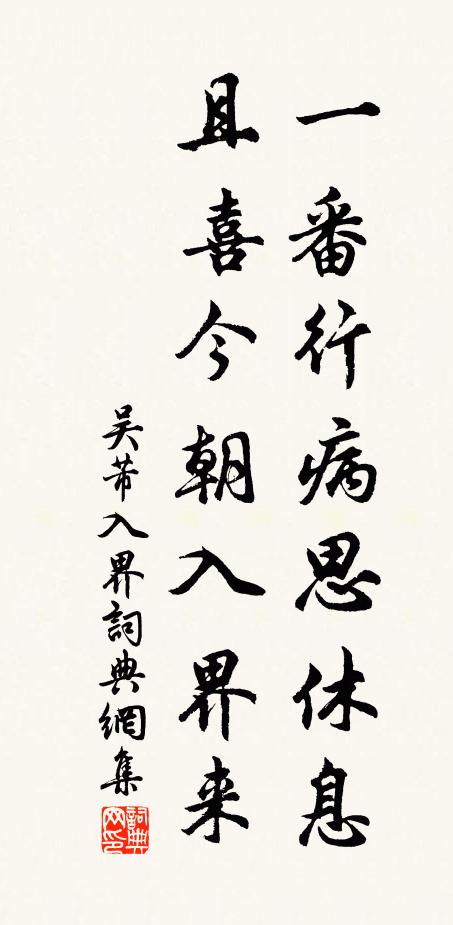 一番行病思休息
且喜今朝入界来
吴芾入界詞典網集
詞典网印